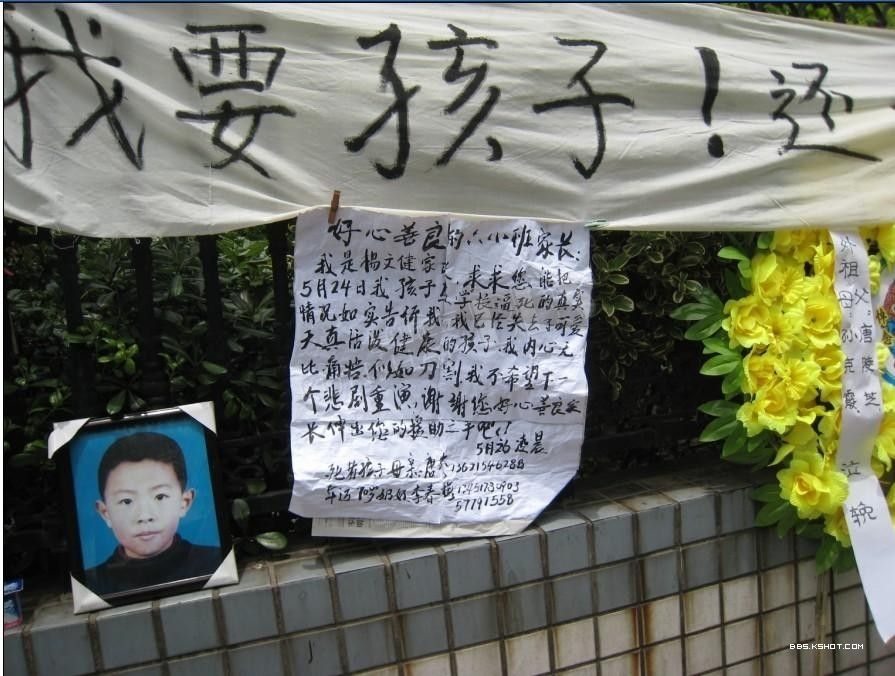 我要孩子！还
好心善良的六(8)班家长：
我是杨文健家长，求求您能把
5月24日我孩子 逼死的真实
情况如实告诉我，我已经失去了可爱
天真活泼健康的孩子，我内心无
比痛苦，似如刀割，我不希望下一
个悲剧重演，谢谢您，好心善良家
长伸出您的援助之手吧！
5月26凌晨
死者孩子母亲：唐
年迈70岁奶奶李春梅
57791558
外祖父：唐陵芝
母孙克霞
泣挽
BBS.KSHOT.COM